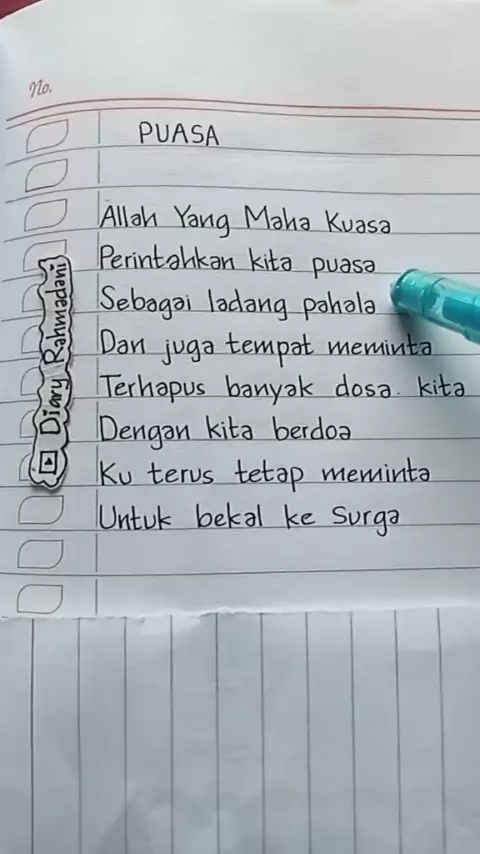 No.
PUASA
Allah Yang Maha Kuasa
Perintahkan kita puasa
Sebagai ladang pahala
Dan juga tempat meminta
Terhapus banyak dosa kita
Dengan kita berdoa
Ku terus tetap meminta
Untuk bekal ke Surga
Diary Rahmadani